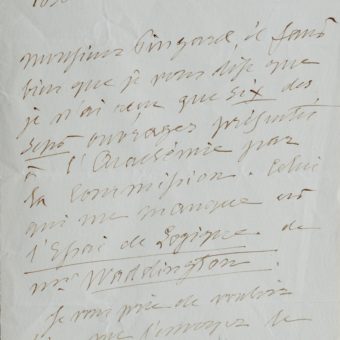 monsieur Pingard, il faut
bien que je vous dise que
je n'ai reçu que six des
sept ouvrages présentés
à l'Académie par
la Commission. Celui
qui me manque est
l'Essai de Logique de
mr. Waddington.
Je vous prie de vouloir
me l'envoyer de